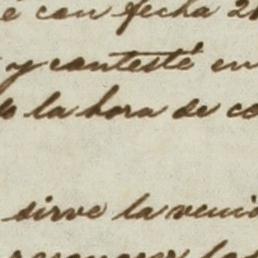 é con fecha 2
y contesté en
la hora de co
sirve la venci